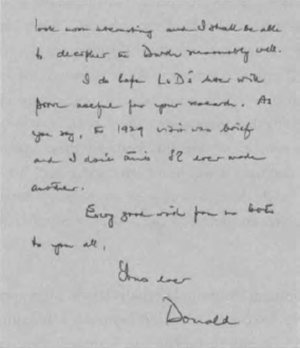 look most interesting and I shall be able
to decipher the Dutch reasonably well.
I do hope LoD's will
prove useful for your research. As
you say, the 1929 visit was brief
and I don't think ever made
another.
Every good wish from us both
to you all,
Yours ever
Donald